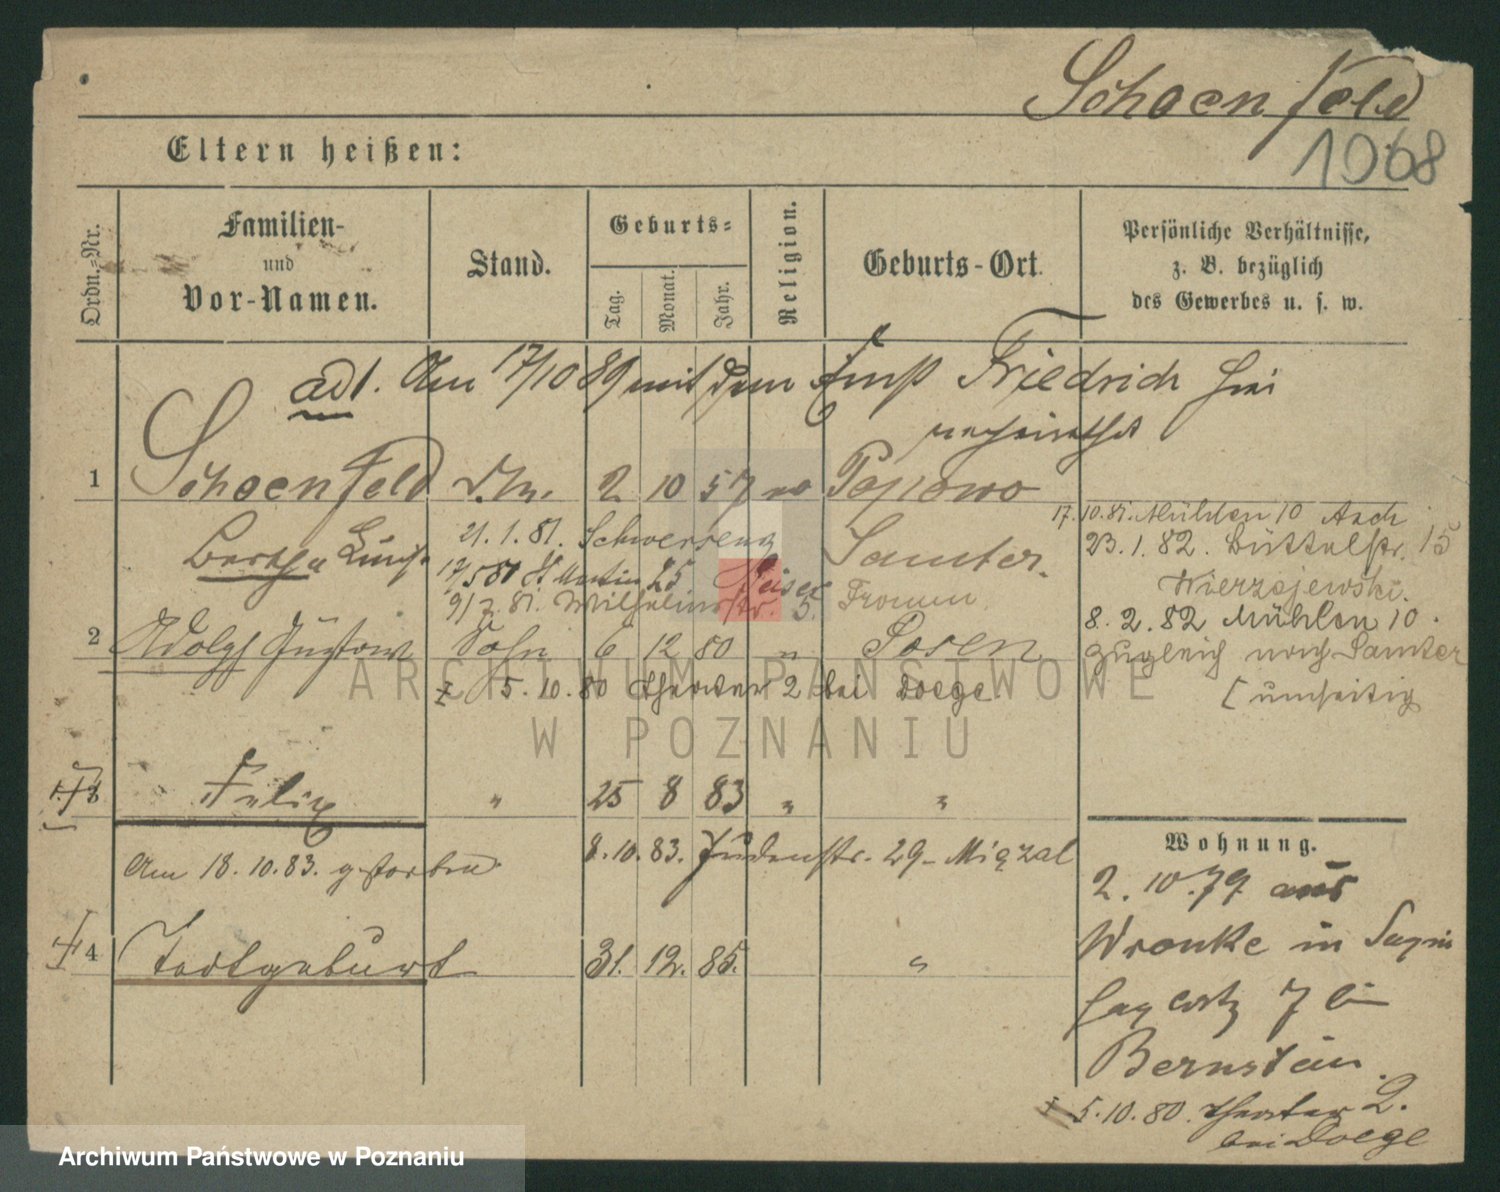 Schoenfeld
1068
Eltern heißen:
Ordn.-Nr.
Familien-
und
Vor-Namen.
Stand.
Geburts-
Tag.
Monat.
Jahr.
Religion.
Geburts-Ort.
Persönliche Verhältnisse,
z. B. bezüglich
des Gewerbes u. s. w.
ad 1. Am 17/10 89 mit dem Friedrich
verheirathet
1 Schoenfeld 2 10 57 Popowo
Bertha 21. 1. 81. Schwersenz Samter.
17.10.81. Mühlen 10 Asch
23. 1. 82. Büttelstr. 15
Wierzejewski.
9/7. 81. Wilhelmstr. 5. Fromm
8. 2. 82 Mühlen 10.
2 Adolph Gustav Sohn 6 12 80 " Posen
zugleich nach Samter
[umseitig
5. 10. 80 Theater 2 bei Doege
3 Felix " 25 8 83 " "
8. 10. 83. Judenstr. 29 -
Am 18. 10. 83. gestorben
Wohnung.
2. 10. 79. aus
Wronke in
4 Todtgeburt 31. 12. 85. "
7 bei
Bernstein.
5. 10. 80. Theater 2.
bei Doege
ARCHIWUM PAŃSTWOWE
W POZNANIU
Archiwum Państwowe w Poznaniu